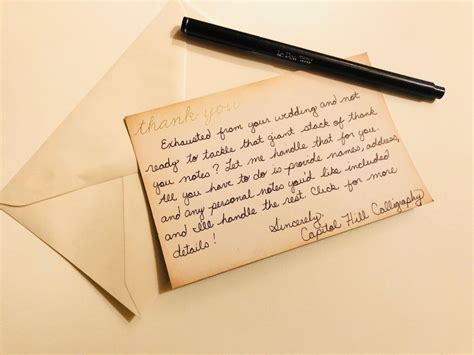 Le Pen
thank you
Exhausted from your wedding and not
ready to tackle that giant stack of thank
you notes? Let me handle that for you.
All you have to do is provide names, address,
and any personal notes you'd like included
and I'll handle the rest. Click for more
details!
Sincerely,
Capitol Hill Calligraphy